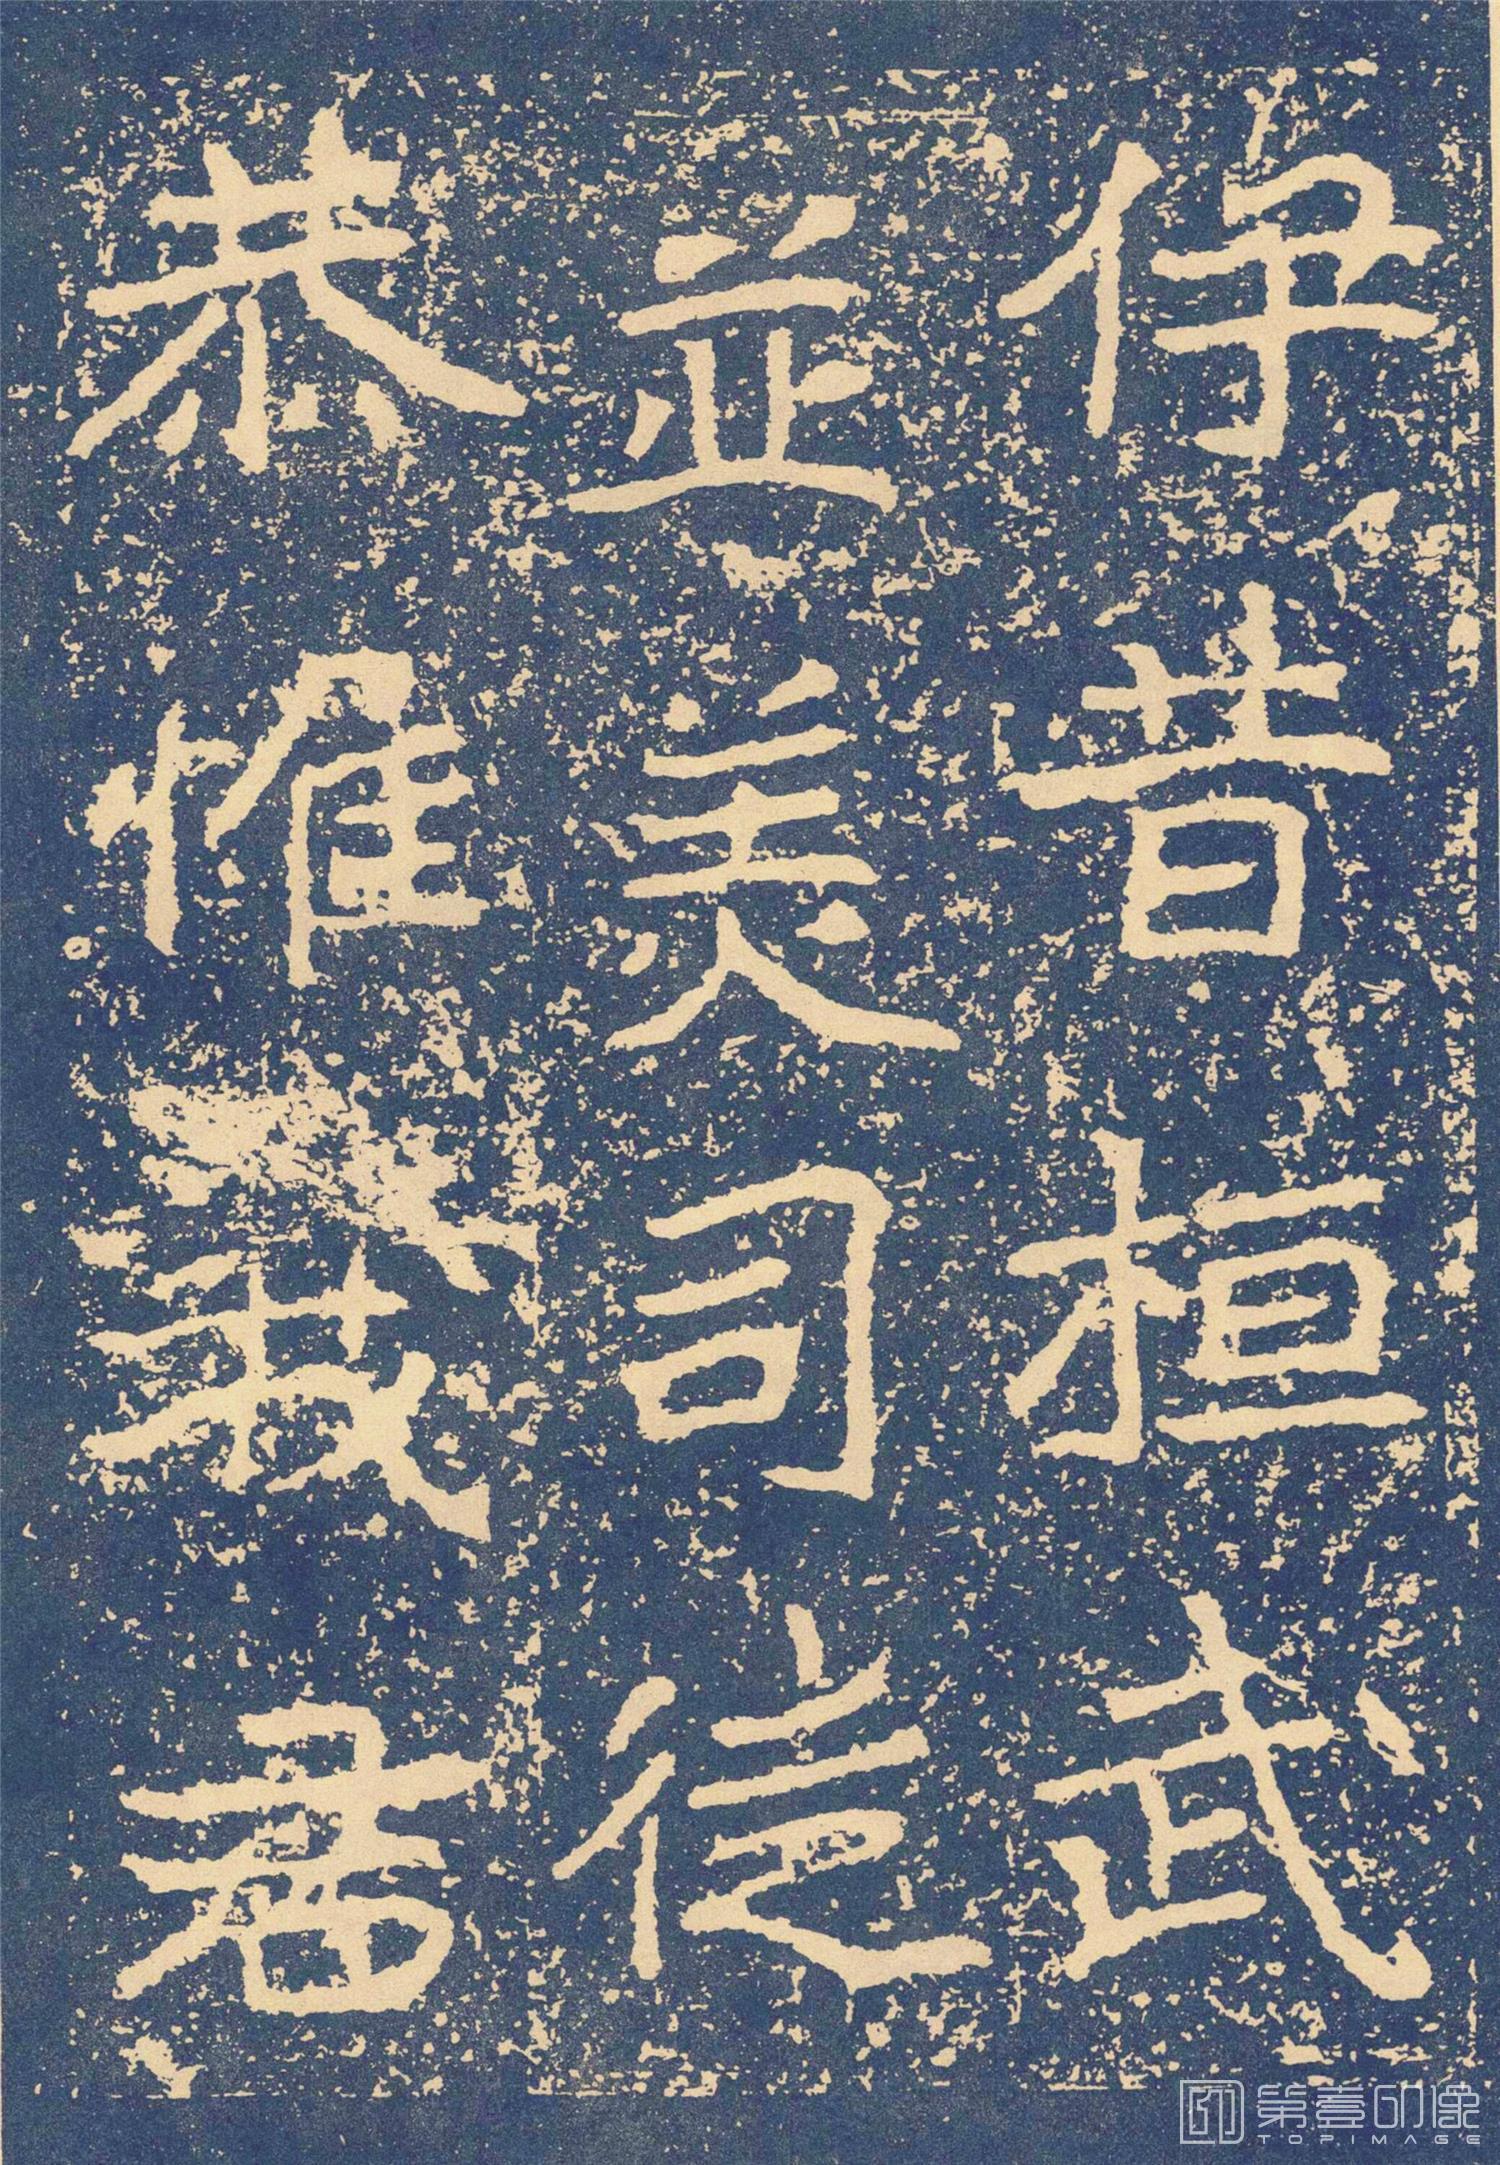 伊昔桓武
並美司徒
恭惟我君
第壹印像
TOPIMAGE